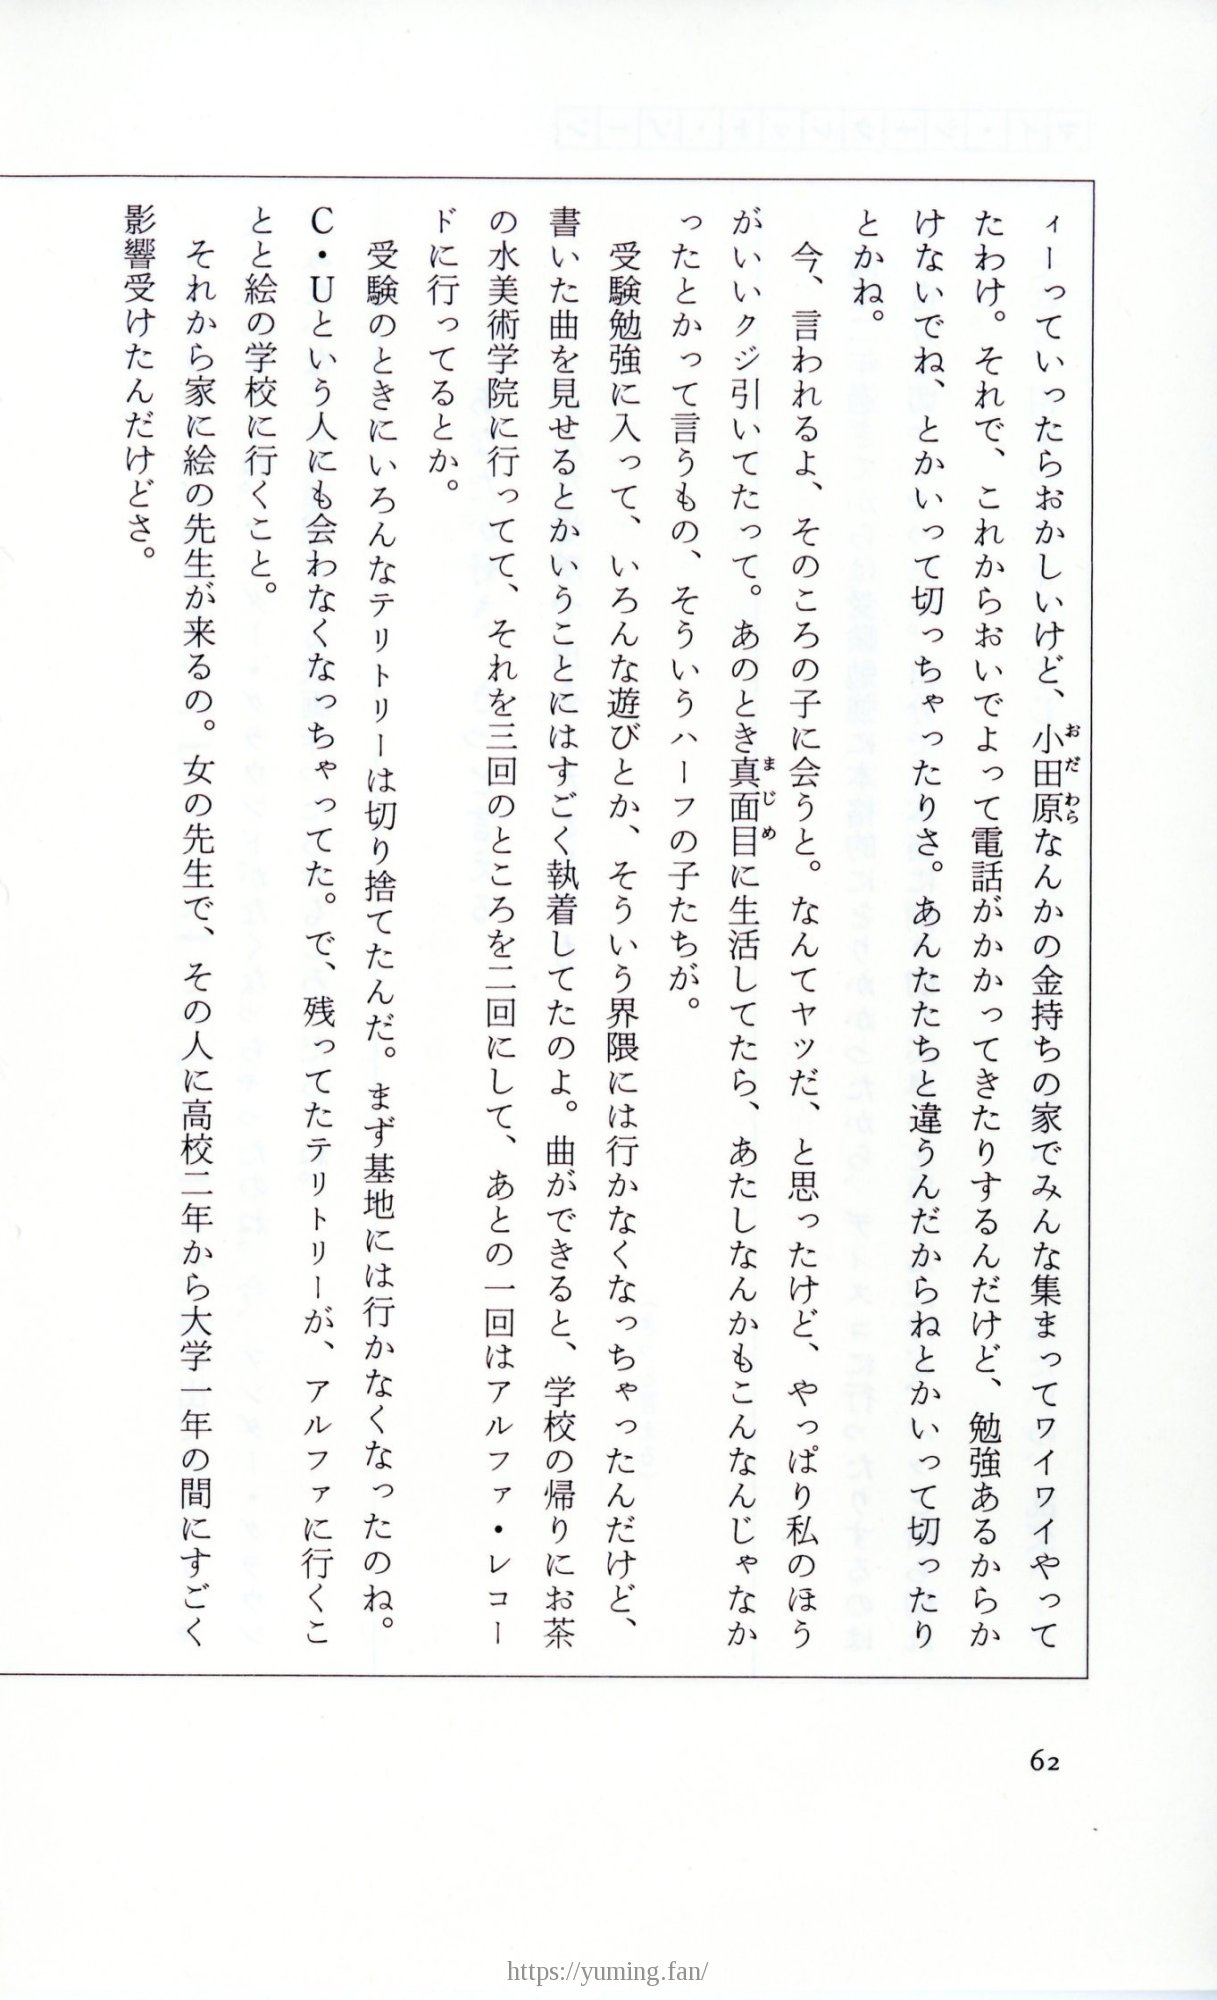 ィーっていったらおかしいけど、小田原なんかの金持ちの家でみんな集まってワイワイやって
たわけ。それで、これからおいでよって電話がかかってきたりするんだけど、勉強あるからか
けないでね、とかいって切っちゃったりさ。あんたたちと違うんだからねとかいって切ったり
とかね。
今、言われるよ、そのころの子に会うと。なんてヤツだ、と思ったけど、やっぱり私のほう
がいいクジ引いてたって。あのとき真面目に生活してたら、あたしなんかもこんなんじゃなか
ったとかって言うもの、そういうハーフの子たちが。
受験勉強に入って、いろんな遊びとか、そういう界隈には行かなくなっちゃったんだけど、
書いた曲を見せるとかいうことにはすごく執着してたのよ。曲ができると、学校の帰りにお茶
の水美術学院に行ってて、それを三回のところを二回にして、あとの一回はアルファ・レコー
ドに行ってるとか。
受験のときにいろんなテリトリーは切り捨てたんだ。まず基地には行かなくなったのね。
C・Uという人にも会わなくなっちゃってた。で、残ってたテリトリーが、アルファに行くこ
とと絵の学校に行くこと。
それから家に絵の先生が来るの。女の先生で、その人に高校二年から大学一年の間にすごく
影響受けたんだけどさ。
62
https://yuming.fan/